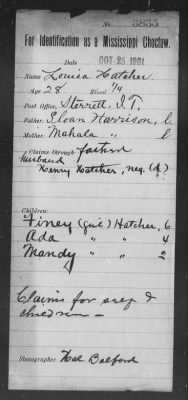 No. 3835
For Identification as a Mississippi Choctaw.
Date OCT 25 1901
Name, Louisa Hatcher
Age 28 Blood 1/4
Post Office, Sterrett, I.T.
Father: Sloan Harrison, C
Mother: Mahala "
Claims through father
Husband
Henry Hatcher, neg.
Children:
Finey (girl) Hatcher, 6
Ada " " 4
Mandy " " 2
Claims for self &
children —
Stenographer Hal Belford